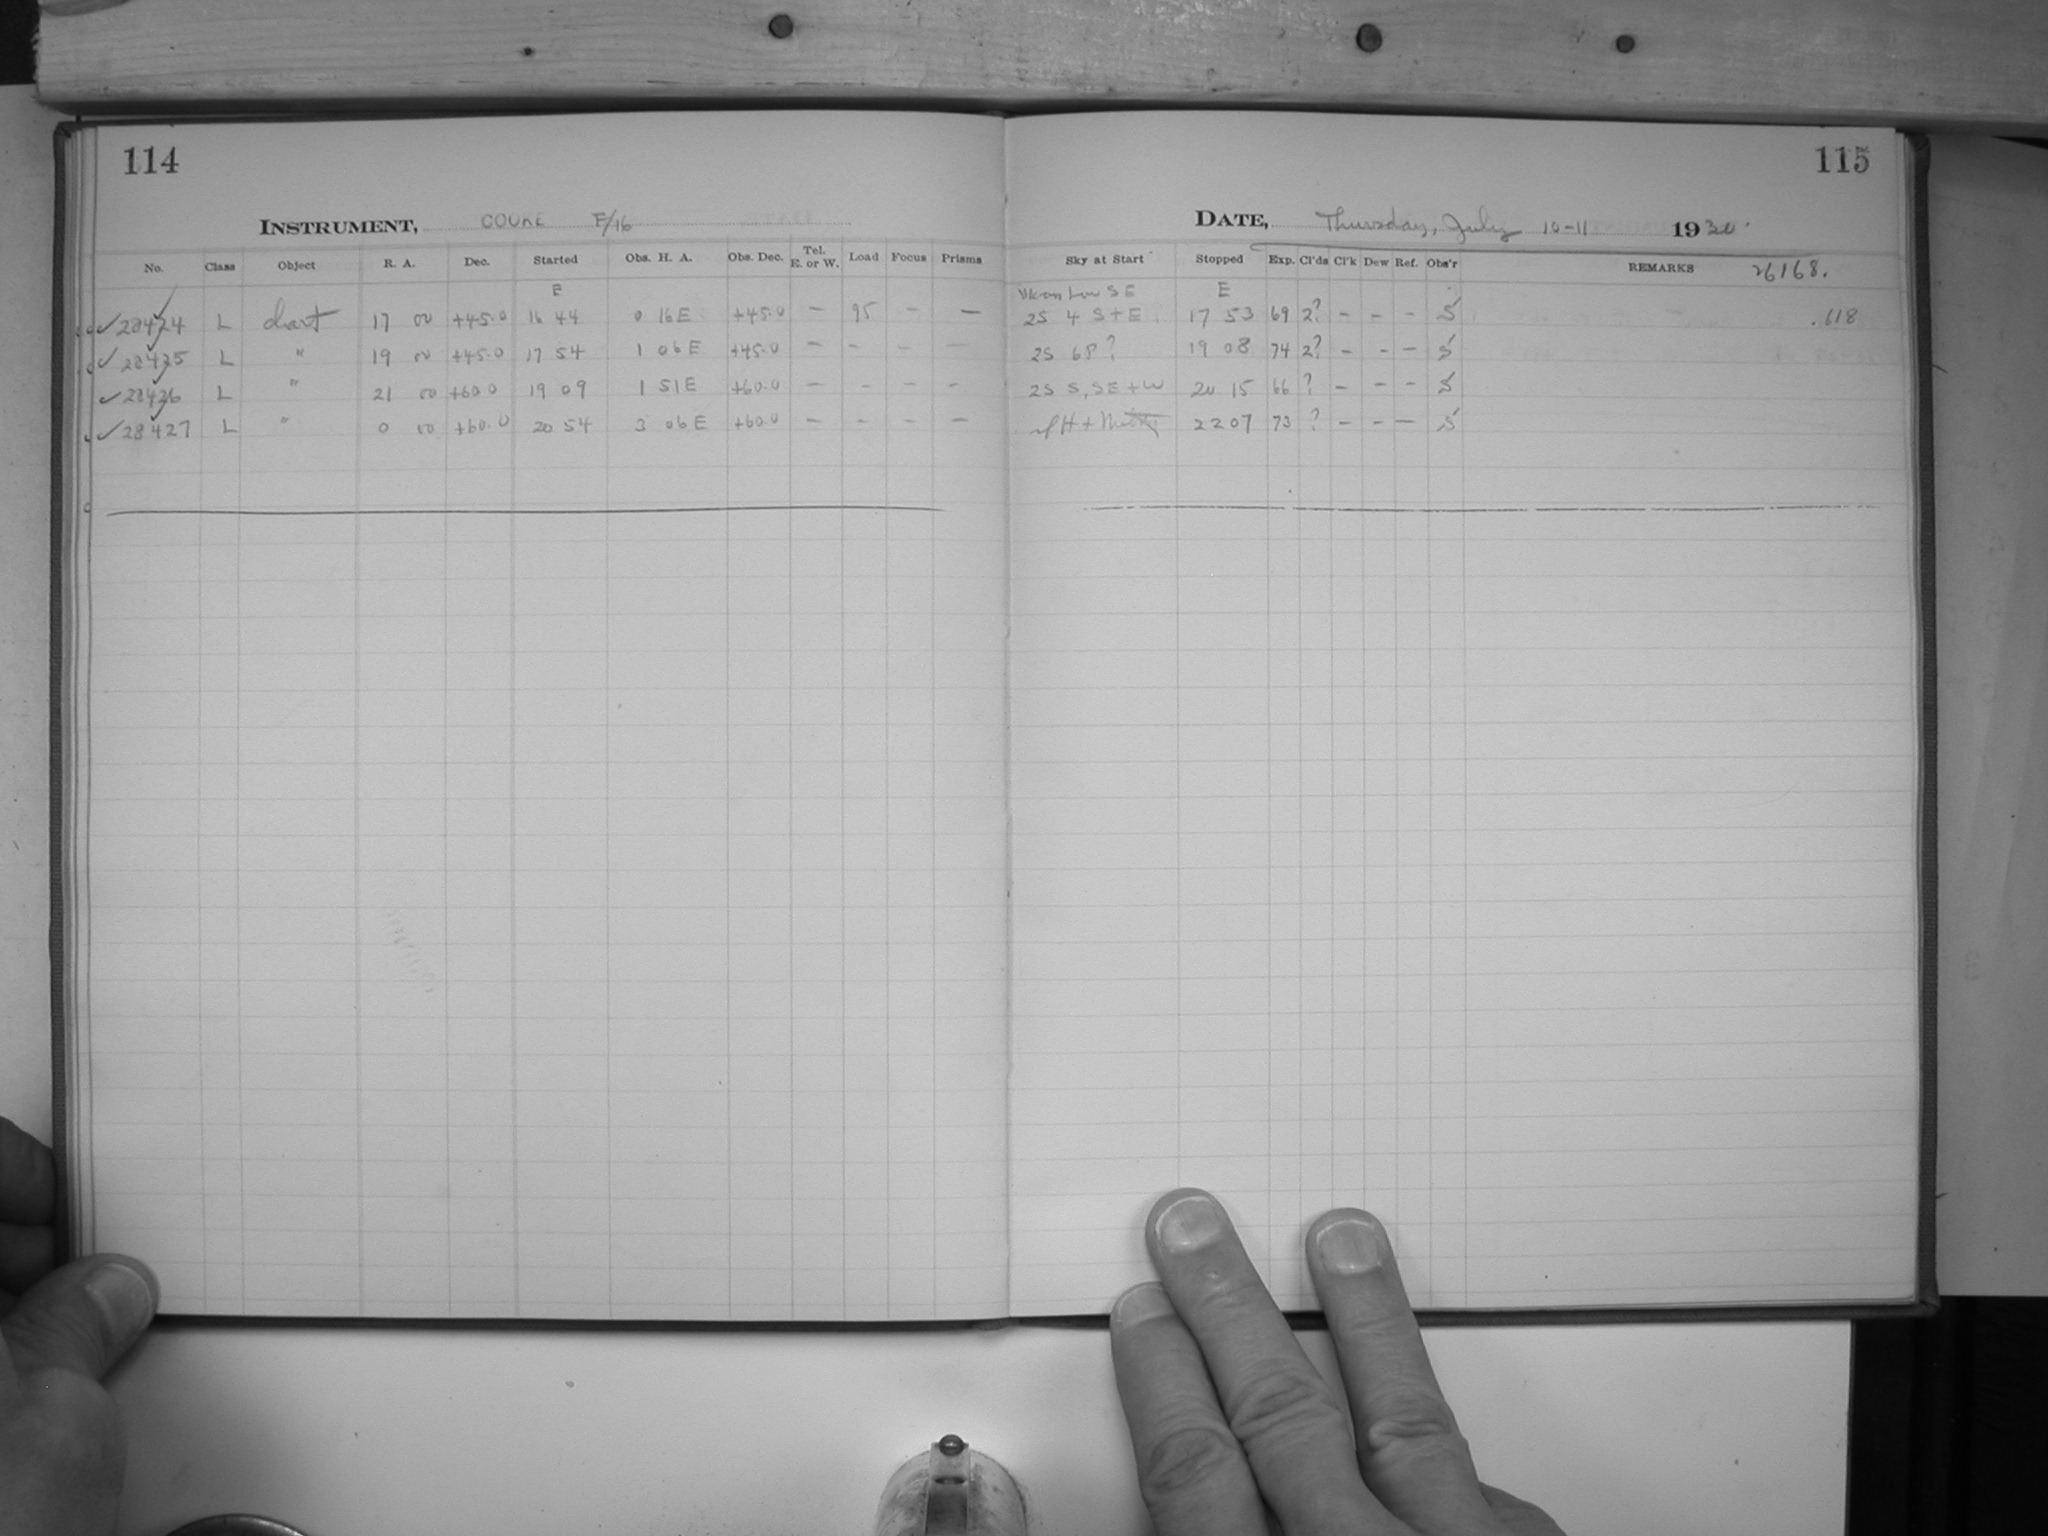 114
INSTRUMENT, COOKE F/16
No. Class Object R. A. Dec. Started Obs. H. A. Obs. Dec. Tel. E. or W. Load Focus Prisms
E
✓ 28424 L chart 17 00 +45.0 16 44 0 16 E +45.0 — 95 — —
✓ 28425 L " 19 00 +45.0 17 54 1 06 E +45.0 — — — —
✓ 28426 L " 21 00 +60.0 19 09 1 51 E +60.0 — — — —
✓ 28427 L " 0 00 +60.0 20 54 3 06 E +60.0 — — — —
115
DATE, Thursday, July 10-11 1930
Sky at Start Stopped Exp. Cl'ds Cl'k Dew Ref. Obs'r REMARKS 26168.
Moon Low SE E
2S 4 S+E 17 53 69 2? — — — S .118
2S 6P? 19 08 74 2? — — — S
2S S, SE + W 20 15 66 ? — — — S
H + 22 07 73 ? — — — S